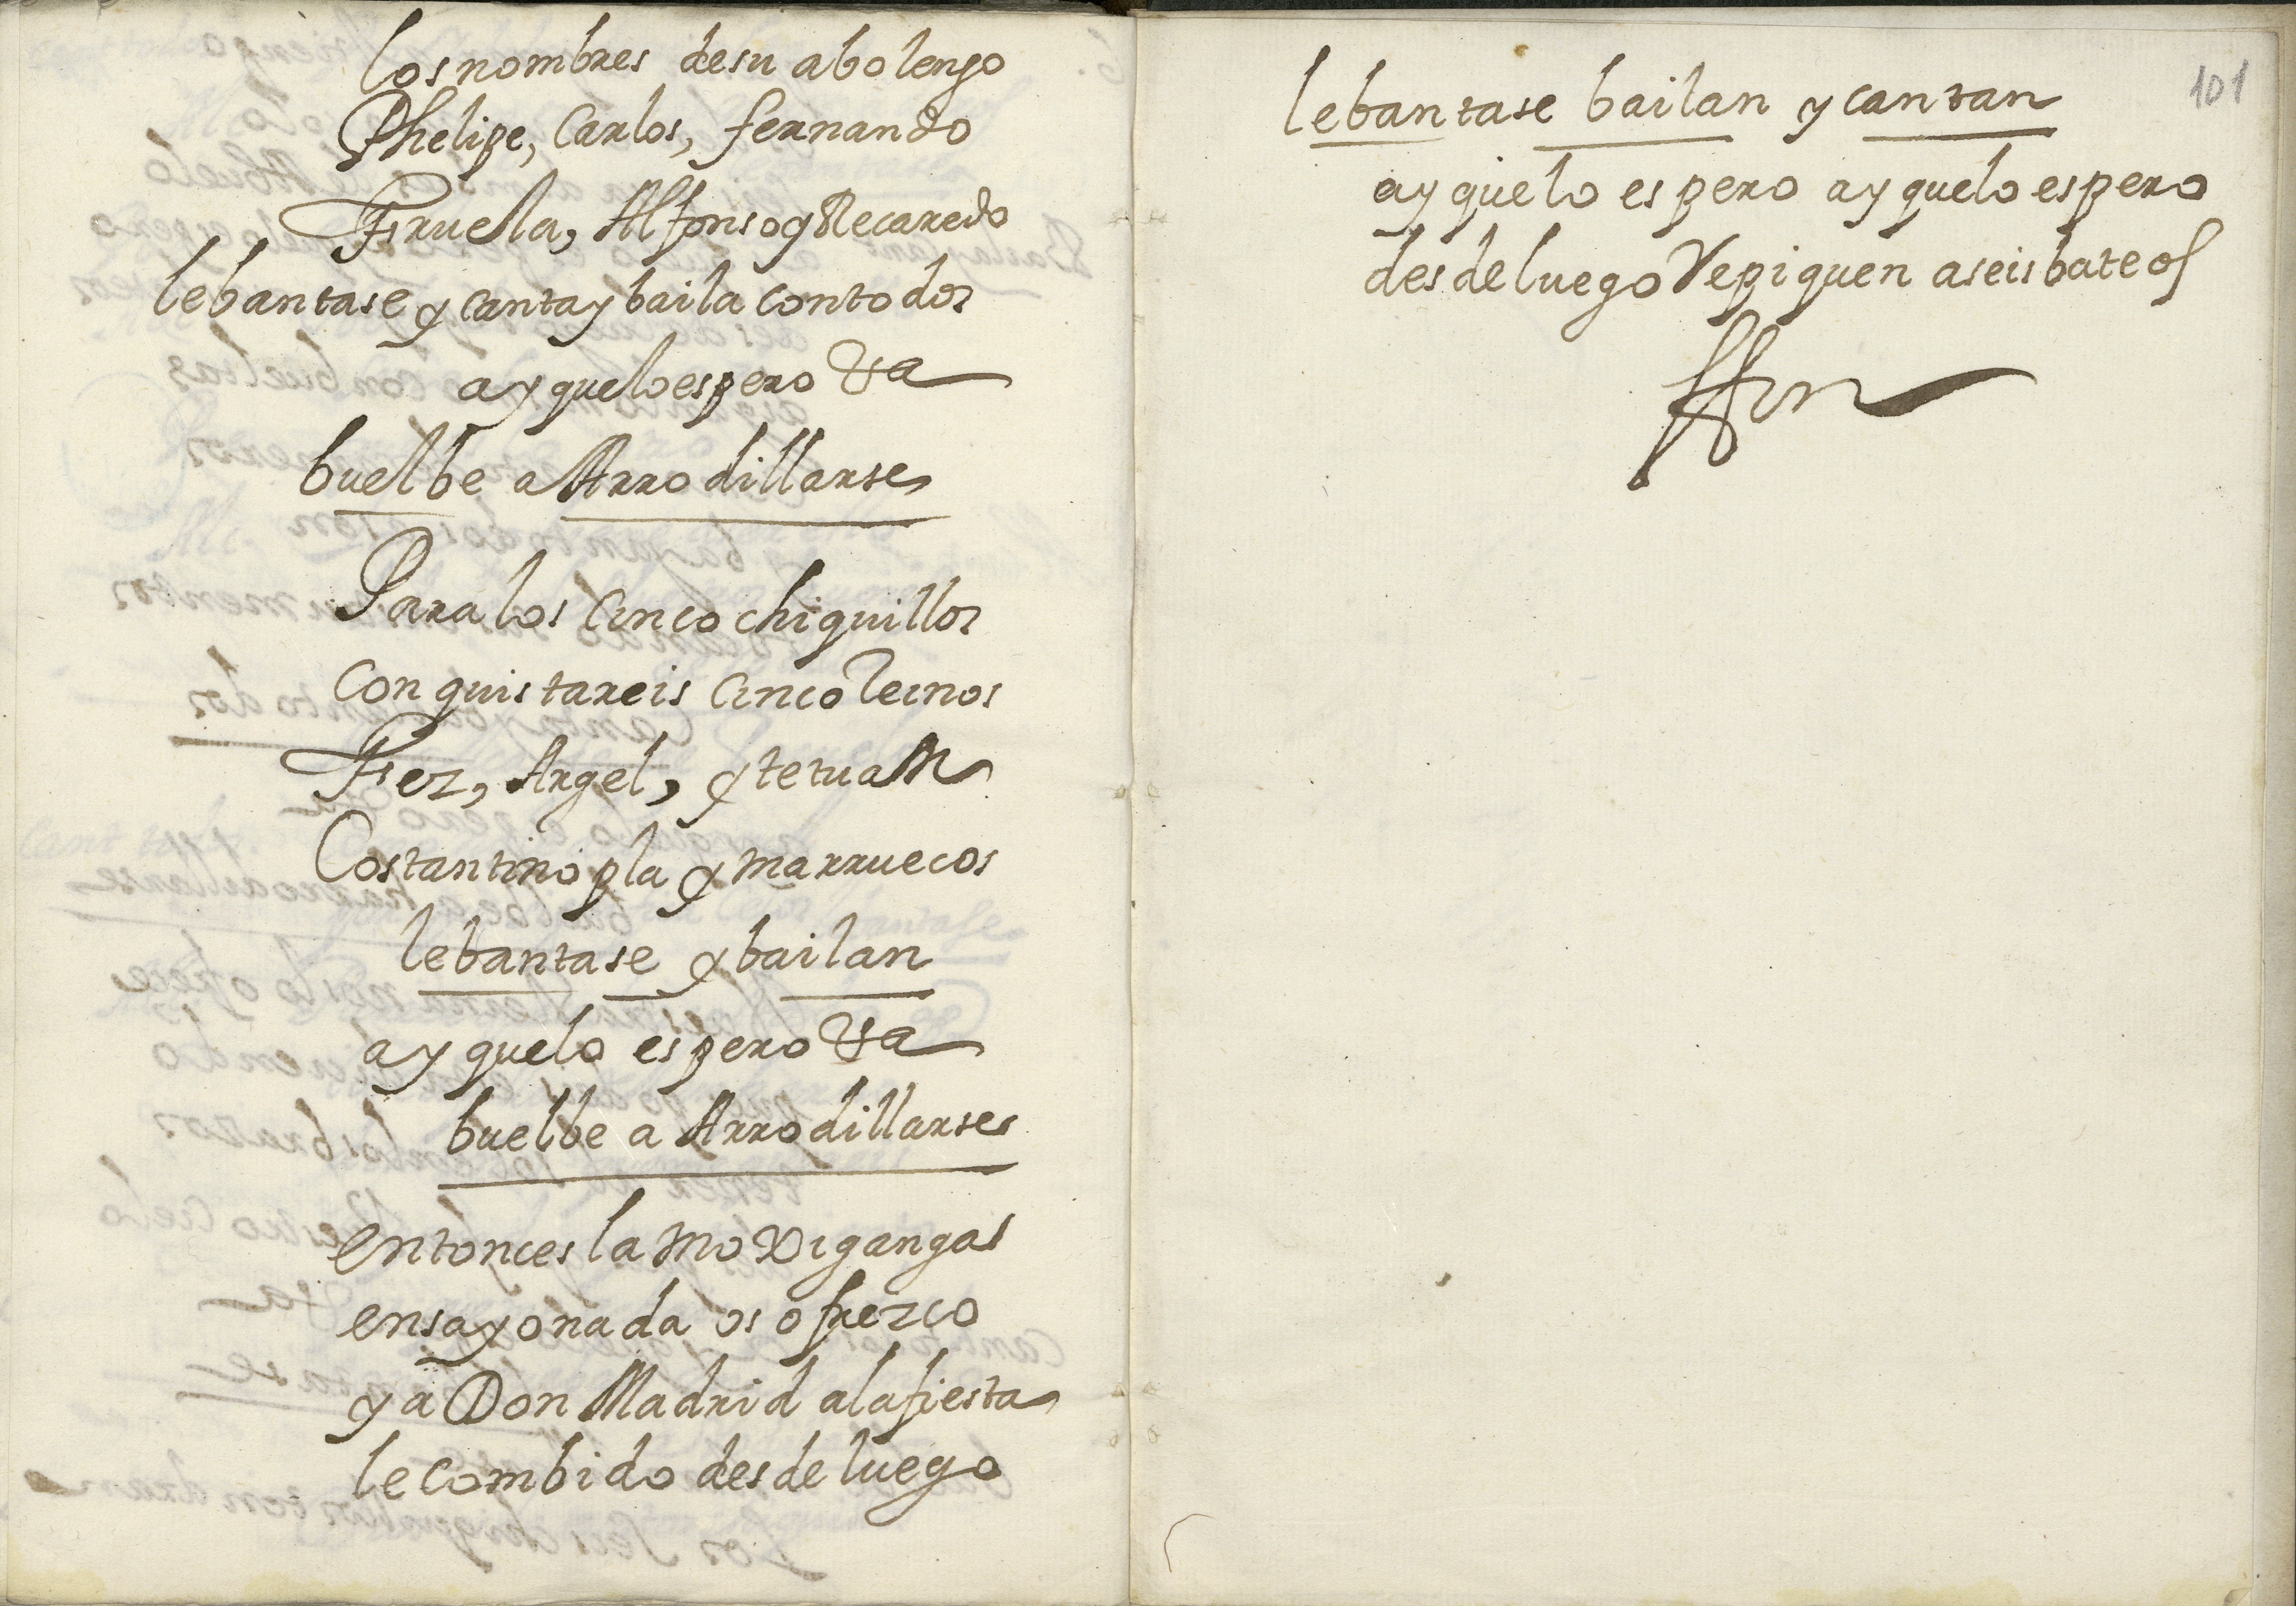 los nombres de su abolengo
Phelipe, Carlos, fernando
Fruella, Alfonso y Recaredo
lebantase y canta y baila con todos
ay que lo espero &a
buelbe a Arrodillarse
Para los cinco chiquillos
conquistareis cinco Reinos
Fez, Argel, y tetuan
Costantinopla y marruecos
lebantase y bailan
ay que lo espero &a
buelbe a Arrodillarse
entonces la moxiganga
ensayonada os ofrezco
y a Don Madrid a la fiesta
le combido desde luego
101
lebantase bailan y cantan
ay que lo espero ay que lo espero
desde luego Repiquen a seis bateos
ffin